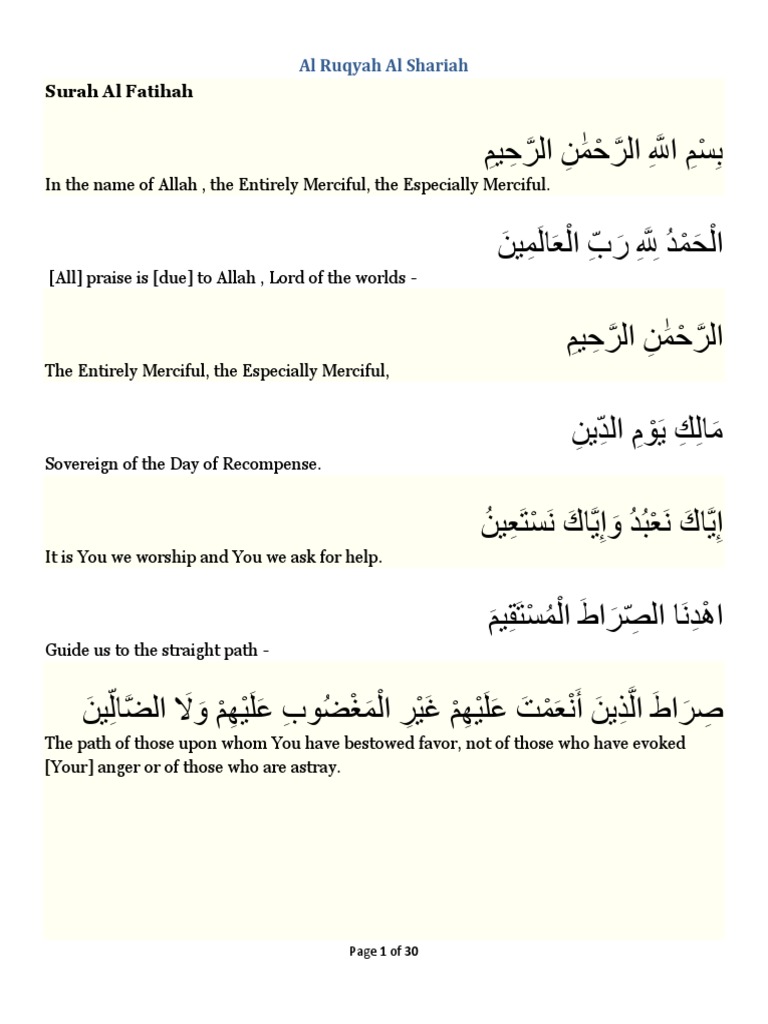 Al Ruqyah Al Shariah
Surah Al Fatihah
بِسْمِ اللَّهِ الرَّحْمَٰنِ الرَّحِيمِ
In the name of Allah , the Entirely Merciful, the Especially Merciful.
الْحَمْدُ لِلَّهِ رَبِّ الْعَالَمِينَ
[All] praise is [due] to Allah , Lord of the worlds -
الرَّحْمَٰنِ الرَّحِيمِ
The Entirely Merciful, the Especially Merciful,
مَالِكِ يَوْمِ الدِّينِ
Sovereign of the Day of Recompense.
إِيَّاكَ نَعْبُدُ وَإِيَّاكَ نَسْتَعِينُ
It is You we worship and You we ask for help.
اهْدِنَا الصِّرَاطَ الْمُسْتَقِيمَ
Guide us to the straight path -
صِرَاطَ الَّذِينَ أَنْعَمْتَ عَلَيْهِمْ غَيْرِ الْمَغْضُوبِ عَلَيْهِمْ وَلَا الضَّالِّينَ
The path of those upon whom You have bestowed favor, not of those who have evoked
[Your] anger or of those who are astray.
Page 1 of 30